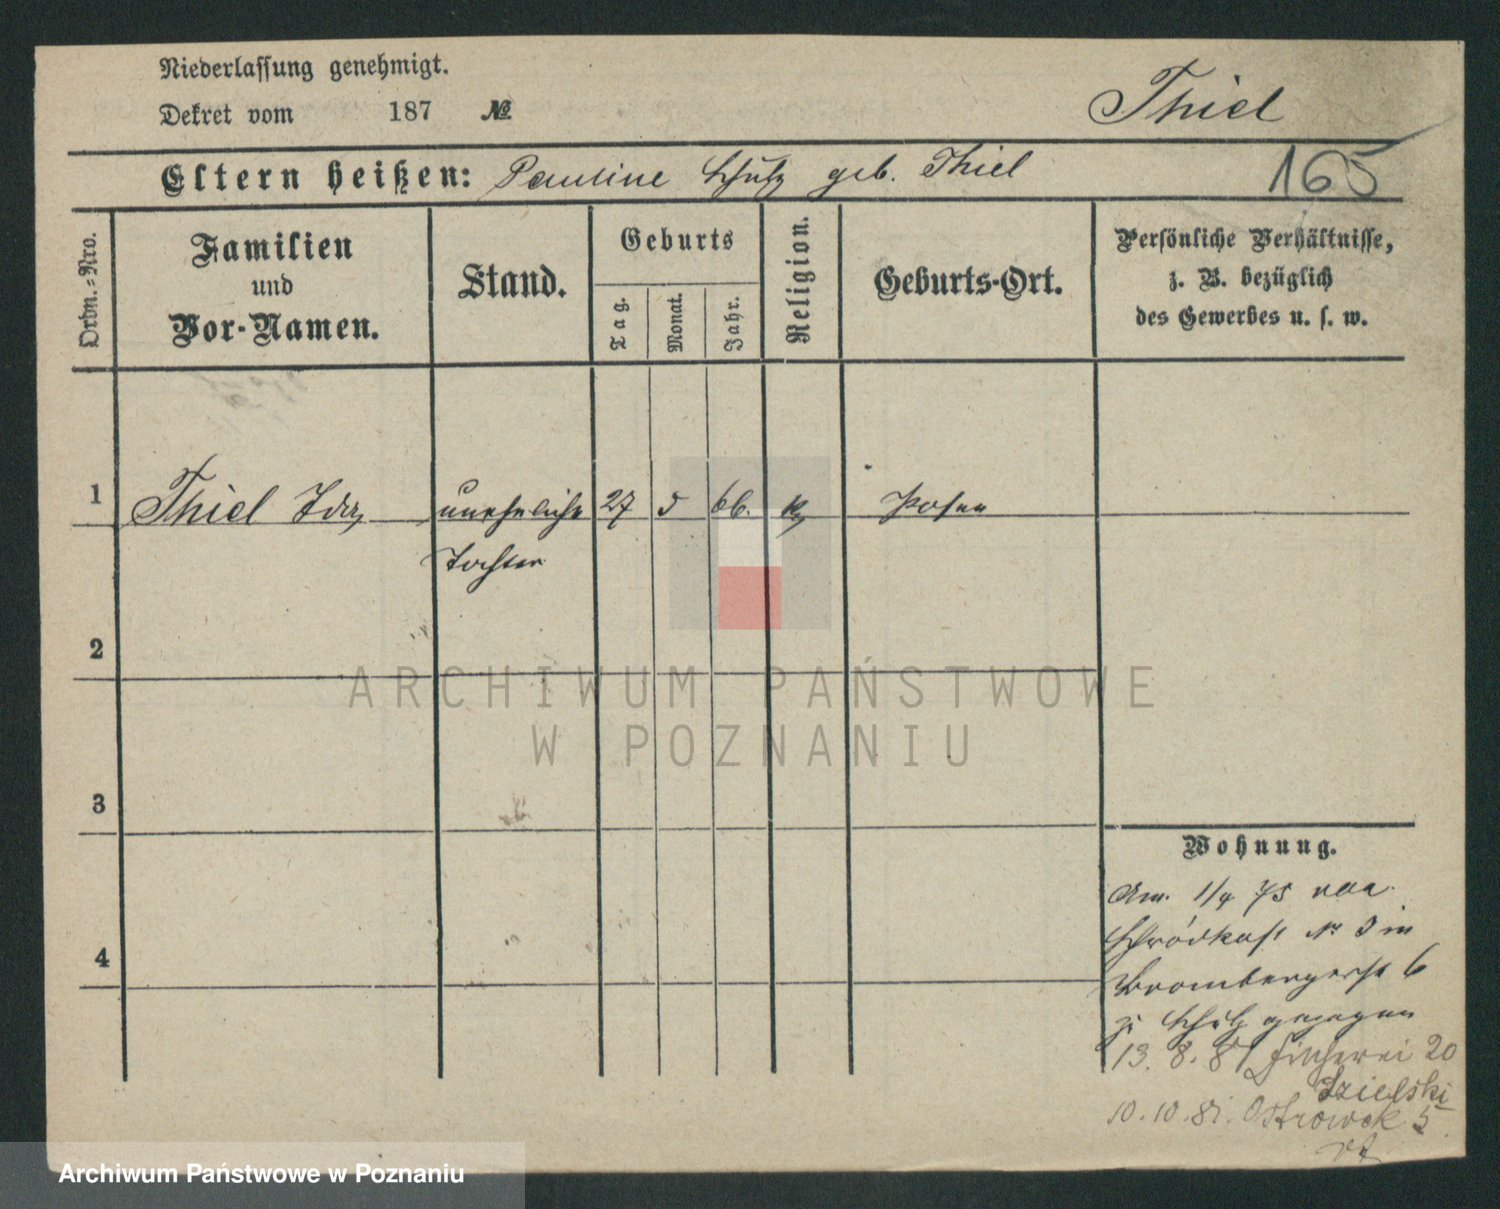 Niederlassung genehmigt.
Dekret vom 187 №
Thiel
Eltern heißen: Pauline Schulz geb. Thiel
165
Ordn.-Nro.
Familien
und
Vor-Namen.
Stand.
Geburts
Tag.
Monat.
Jahr.
Religion.
Geburts-Ort.
Persönliche Verhältnisse,
z. B. bezüglich
des Gewerbes u. s. w.
1 Thiel Ida, uneheliche 27 5 66. Posen
Tochter
2
3
4
ARCHIWUM PAŃSTWOWE
W POZNANIU
Wohnung.
Am. 1/4 75 von
Schrodkast № 3 in
Brombergerst 6
zu Schulz gezogen
13. 8. 81 Fischerei 20
Szielski
10. 10. 81. Ostrowek 5
Archiwum Państwowe w Poznaniu